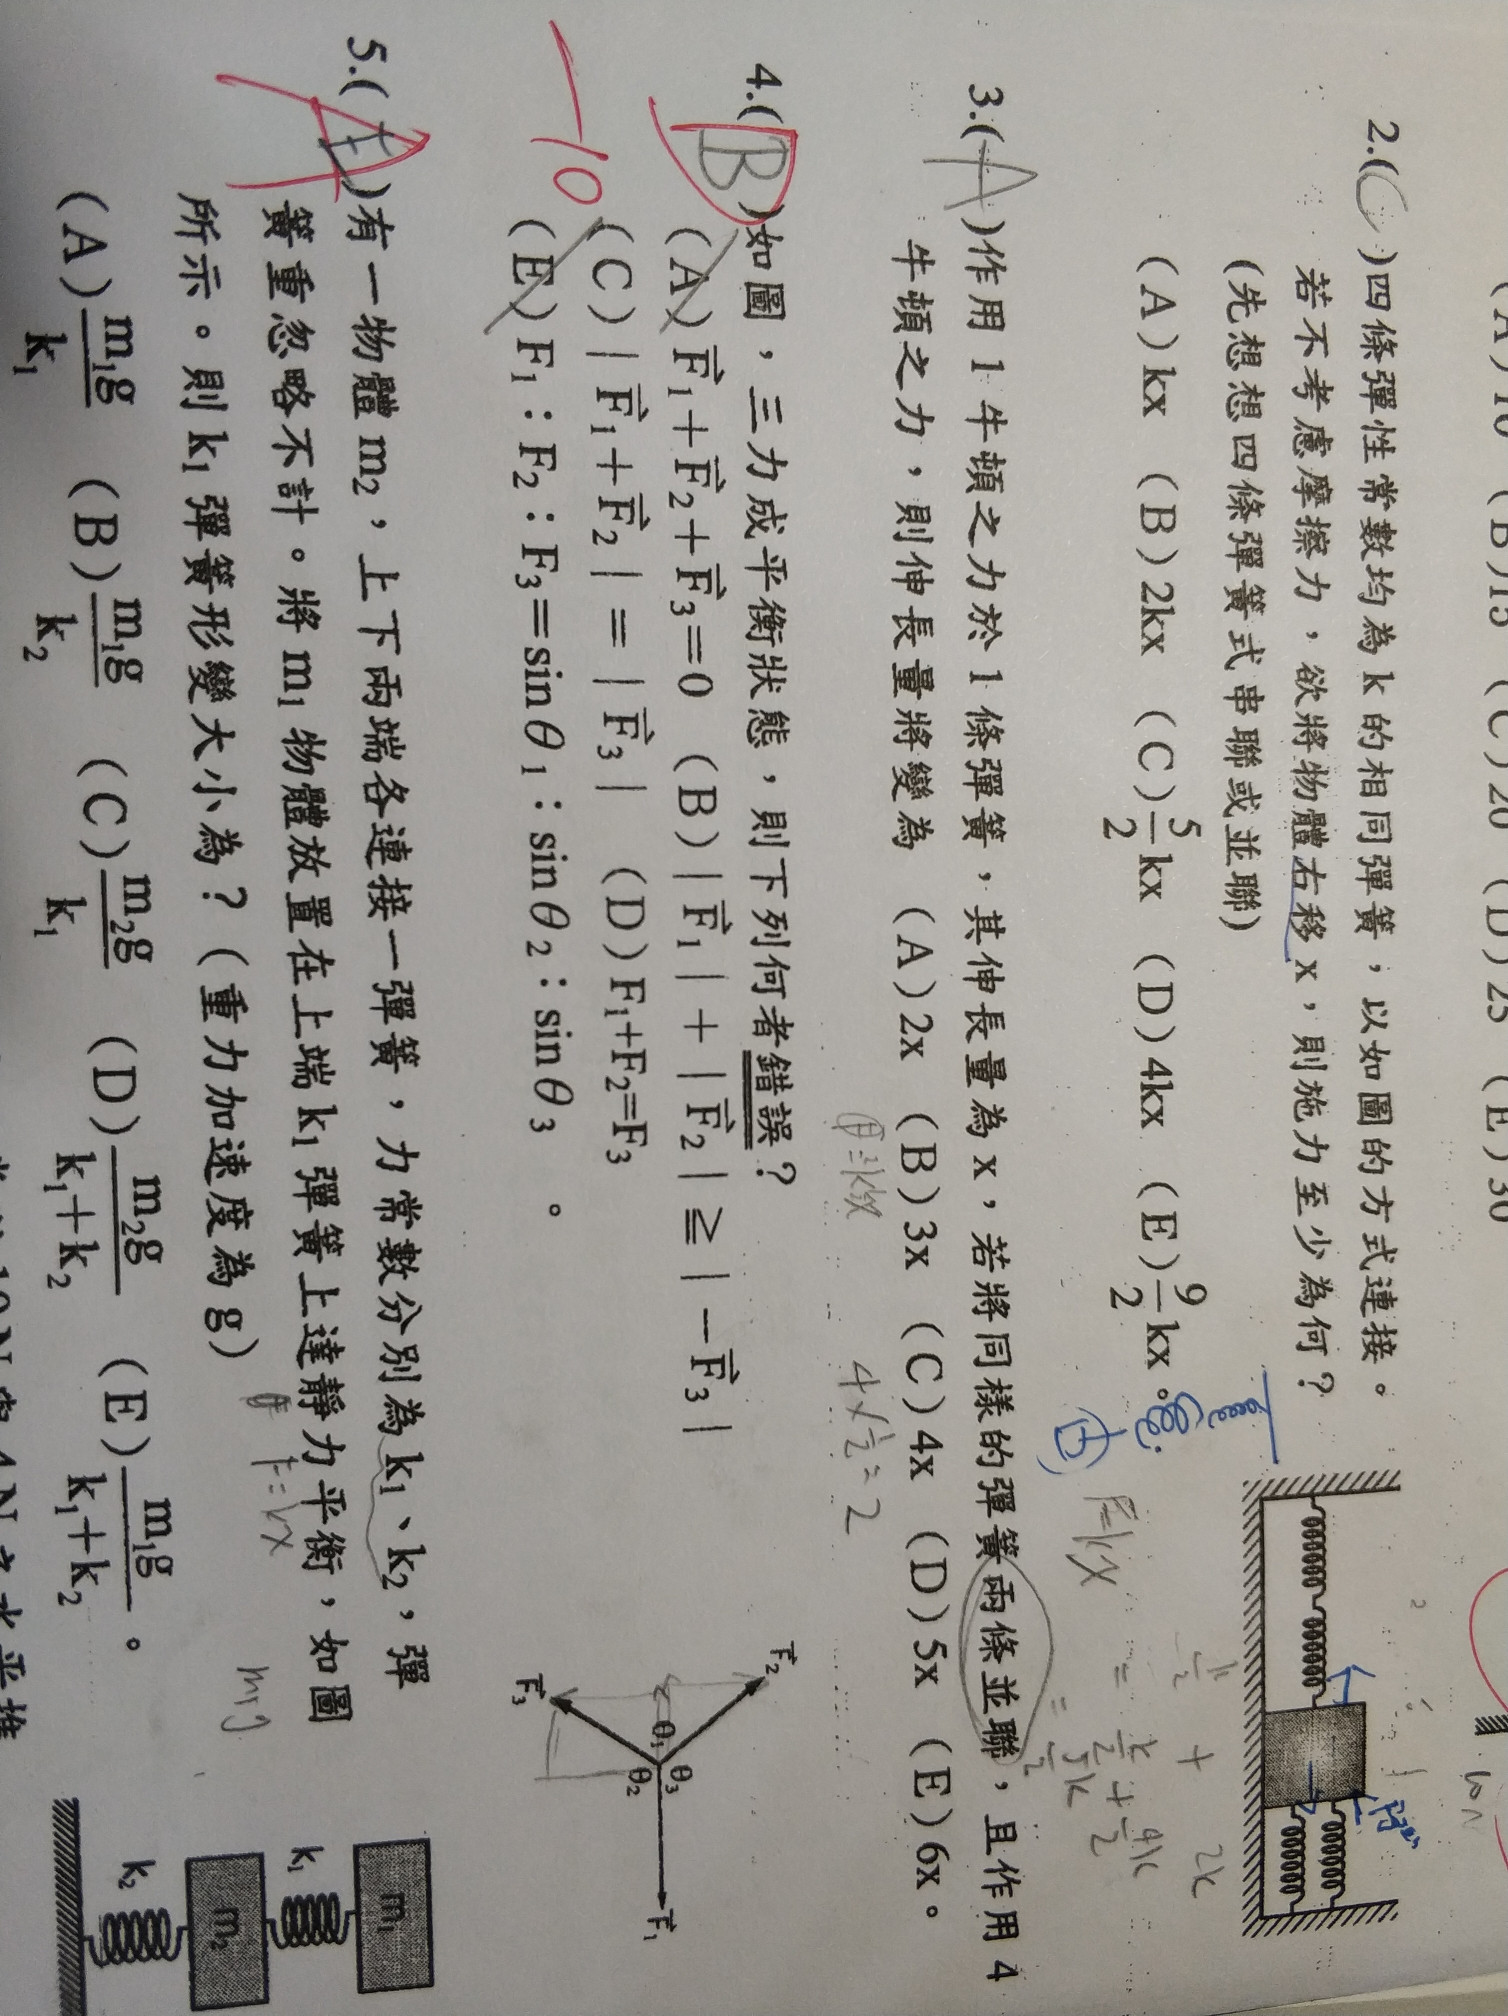 (A)10 (B)15 (C)20 (D)25 (E)30
2.(C)四條彈性常數均為k的相同彈簧，以如圖的方式連接。
若不考慮摩擦力，欲將物體右移x，則施力至少為何？
(先想想四條彈簧式串聯或並聯)
(A)kx (B)2kx (C)5/2kx (D)4kx (E)9/2kx。
F=kx
k/2 + 2k
= k/2 + 4k/2
= 5k/2
3.(A)作用1牛頓之力於1條彈簧，其伸長量為x，若將同樣的彈簧兩條並聯，且作用4
牛頓之力，則伸長量將變為 (A)2x (B)3x (C)4x (D)5x (E)6x。
4×1/2=2
4.(B)如圖，三力成平衡狀態，則下列何者錯誤？
(A)F⃗1+F⃗2+F⃗3=0 (B)|F⃗1|+|F⃗2|≧|−F⃗3|
(C)|F⃗1+F⃗2|=|F⃗3| (D)F1+F2=F3
(E)F1:F2:F3=sinθ1:sinθ2:sinθ3 。
−10
F⃗2
F⃗3
θ1
θ3
θ2
F⃗1
5.( )有一物體m2，上下兩端各連接一彈簧，力常數分別為k1、k2，彈
簧重忽略不計。將m1物體放置在上端k1彈簧上達靜力平衡，如圖
所示。則k1彈簧形變大小為？(重力加速度為g)
F=kx
m1g
(A)m1g/k1 (B)m1g/k2 (C)m2g/k1 (D)m2g/k1+k2 (E)m1g/k1+k2。
m1
k1
m2
k2